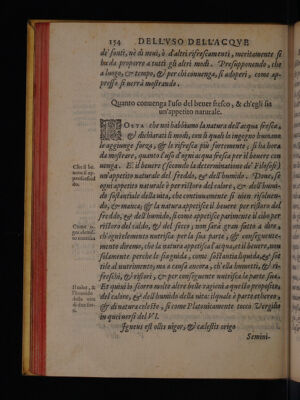 154 DELL'VSO DELL'ACQVE
de' fonti, nè di neui, è d'altri rifrescamenti, meritamente si
ha da proporre a tutti gli altri modi. Presupponendo, che
a luogo, & tempo, & per chi conuenga, si adoperi, come ap-
presso si uerrà mostrando.
Quanto conuenga l'uso del beuer fresco, & ch'egli sia
un'appetito naturale.
POSTA che noi habbiamo la natura dell'acqua fresca,
& dichiarati li modi, con li quali lo ingegno humano
le aggiunge forza, & la rifresca più fortemente; si ha hora
da mostrare, quanto l'uso d'ogni acqua fresca per il beuere con-
uenga. E il beuere (secondo la determinatione de' Filosofi)
un'appetito naturale del freddo, & dell'humido. Doue, si
ogni appetito naturale è per ristoro del calore, & dell'humi-
do sustantiale della vita, che continuamente si uien risoluen-
do, & manca; & la natura appetisce il beuere per ristoro del
freddo, & dell'humido, si come appetisce parimente il cibo per
ristoro del caldo, & del secco; non sarà gran fatto a dire,
ch'i quei elementi nutrisca per la sua parte, & conseguente-
mente diremo, che la natura appetisca l'acqua, et il beuere, non
solamente perche le sia guida, come sottile, & liquida, & sot-
tile al nutrimento, ma a ciò anchora, ch'ella humetti, & ri-
freschi, & ristori, & per conseguente nutrisca la parte sua.
Et quini lo scorro molte altre belle ragioni a questo proposito,
del calore, & dell'humido della uita: il quale è parte ethereo,
& di natura celeste, si come Platonicamente tocca Vergilio
in quei uersi del VI.
Igneus est ollis uigor, & cælestis origo
Semini-